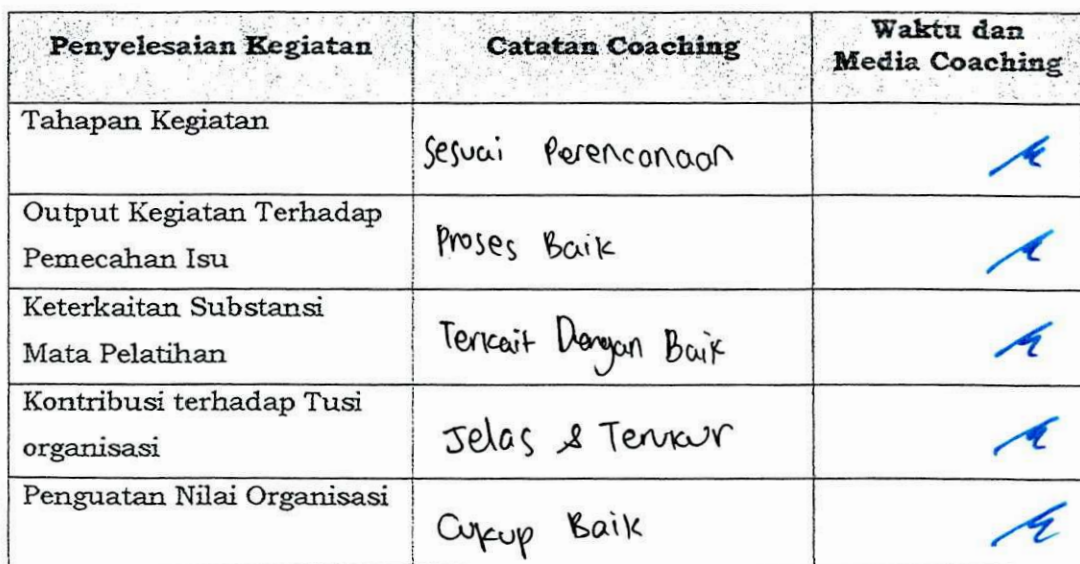 Penyelesaian Kegiatan
Catatan Coaching
Waktu dan
Media Coaching
Tahapan Kegiatan
Sesuai Perencanaan
Output Kegiatan Terhadap
Pemecahan Isu
Proses Baik
Keterkaitan Substansi
Mata Pelatihan
Terkait Dengan Baik
Kontribusi terhadap Tusi
organisasi
Jelas & Terukur
Penguatan Nilai Organisasi
Cukup Baik